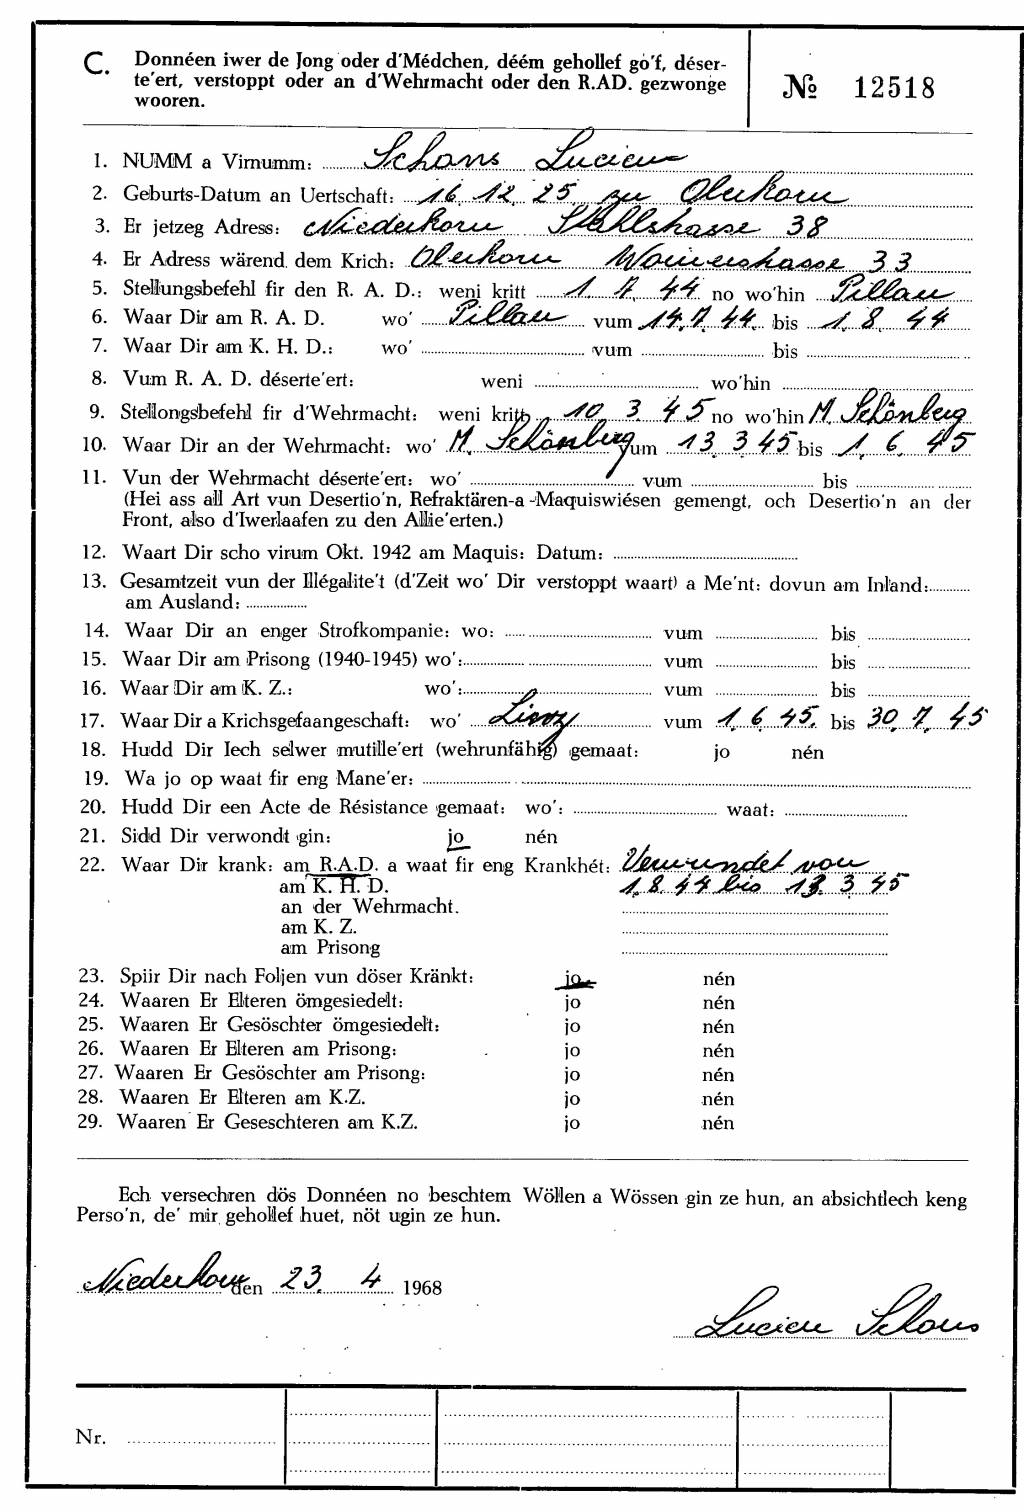 C. Donnéen iwer de Jong oder d'Médchen, déém gehollef go'f, déser-
te'ert, verstoppt oder an d'Wehrmacht oder den R.AD. gezwonge
wooren.
№ 12518
1. NUMM a Virnumm: Schons Lucien
2. Geburts-Datum an Uertschaft: 16. 12. 25 zu Oberkorn
3. Er jetzeg Adress: Niederkorn Stahlstrasse 38
4. Er Adress wärend dem Krich: Oberkorn 33
5. Stellungsbefehl fir den R. A. D.: weni kritt 1. 7. 44 no wo'hin Pillau
6. Waar Dir am R. A. D. wo' Pillau vum 14.7.44. bis 1. 8. 44
7. Waar Dir am K. H. D.: wo' vum bis
8. Vum R. A. D. déserte'ert: weni wo'hin
9. Stellongsbefehl fir d'Wehrmacht: weni kritt 10 3 45 no wo'hin M. Schönberg
10. Waar Dir an der Wehrmacht: wo' M. Schönberg vum 13. 3 45 bis 1. 6. 45
11. Vun der Wehrmacht déserte'ert: wo' vum bis
(Hei ass all Art vun Desertio'n, Refraktären-a -Maquiswiésen gemengt, och Desertio'n an der
Front, also d'Iwerlaafen zu den Allie'erten.)
12. Waart Dir scho virum Okt. 1942 am Maquis: Datum:
13. Gesamtzeit vun der Illégalite't (d'Zeit wo' Dir verstoppt waart) a Me'nt: dovun am Inland:
am Ausland:
14. Waar Dir an enger Strofkompanie: wo: vum bis
15. Waar Dir am Prisong (1940-1945) wo': vum bis
16. Waar Dir am K. Z.: wo': vum bis
17. Waar Dir a Krichsgefaangeschaft: wo' vum 1. 6. 45. bis 30. 7. 45
18. Hudd Dir Iech selwer mutille'ert (wehrunfähig) gemaat: jo nén
19. Wa jo op waat fir eng Mane'er:
20. Hudd Dir een Acte de Résistance gemaat: wo': waat:
21. Sidd Dir verwondt gin: jo nén
22. Waar Dir krank: am R.A.D. a waat fir eng Krankhét: Verwundet von
am K. H. D. 1. 8. 44 bis 13. 3 45
an der Wehrmacht.
am K. Z.
am Prisong
23. Spiir Dir nach Foljen vun döser Kränkt: jo nén
24. Waaren Er Elteren ömgesiedelt: jo nén
25. Waaren Er Gesöschter ömgesiedelt: jo nén
26. Waaren Er Elteren am Prisong: jo nén
27. Waaren Er Gesöschter am Prisong: jo nén
28. Waaren Er Elteren am K.Z. jo nén
29. Waaren Er Geseschteren am K.Z. jo nén
Ech versechren dös Donnéen no beschtem Wöllen a Wössen gin ze hun, an absichtlech keng
Perso'n, de' mir gehollef huet, nöt ugin ze hun.
Niederkorn den 23. 4 1968
Lucien Schons
Nr.